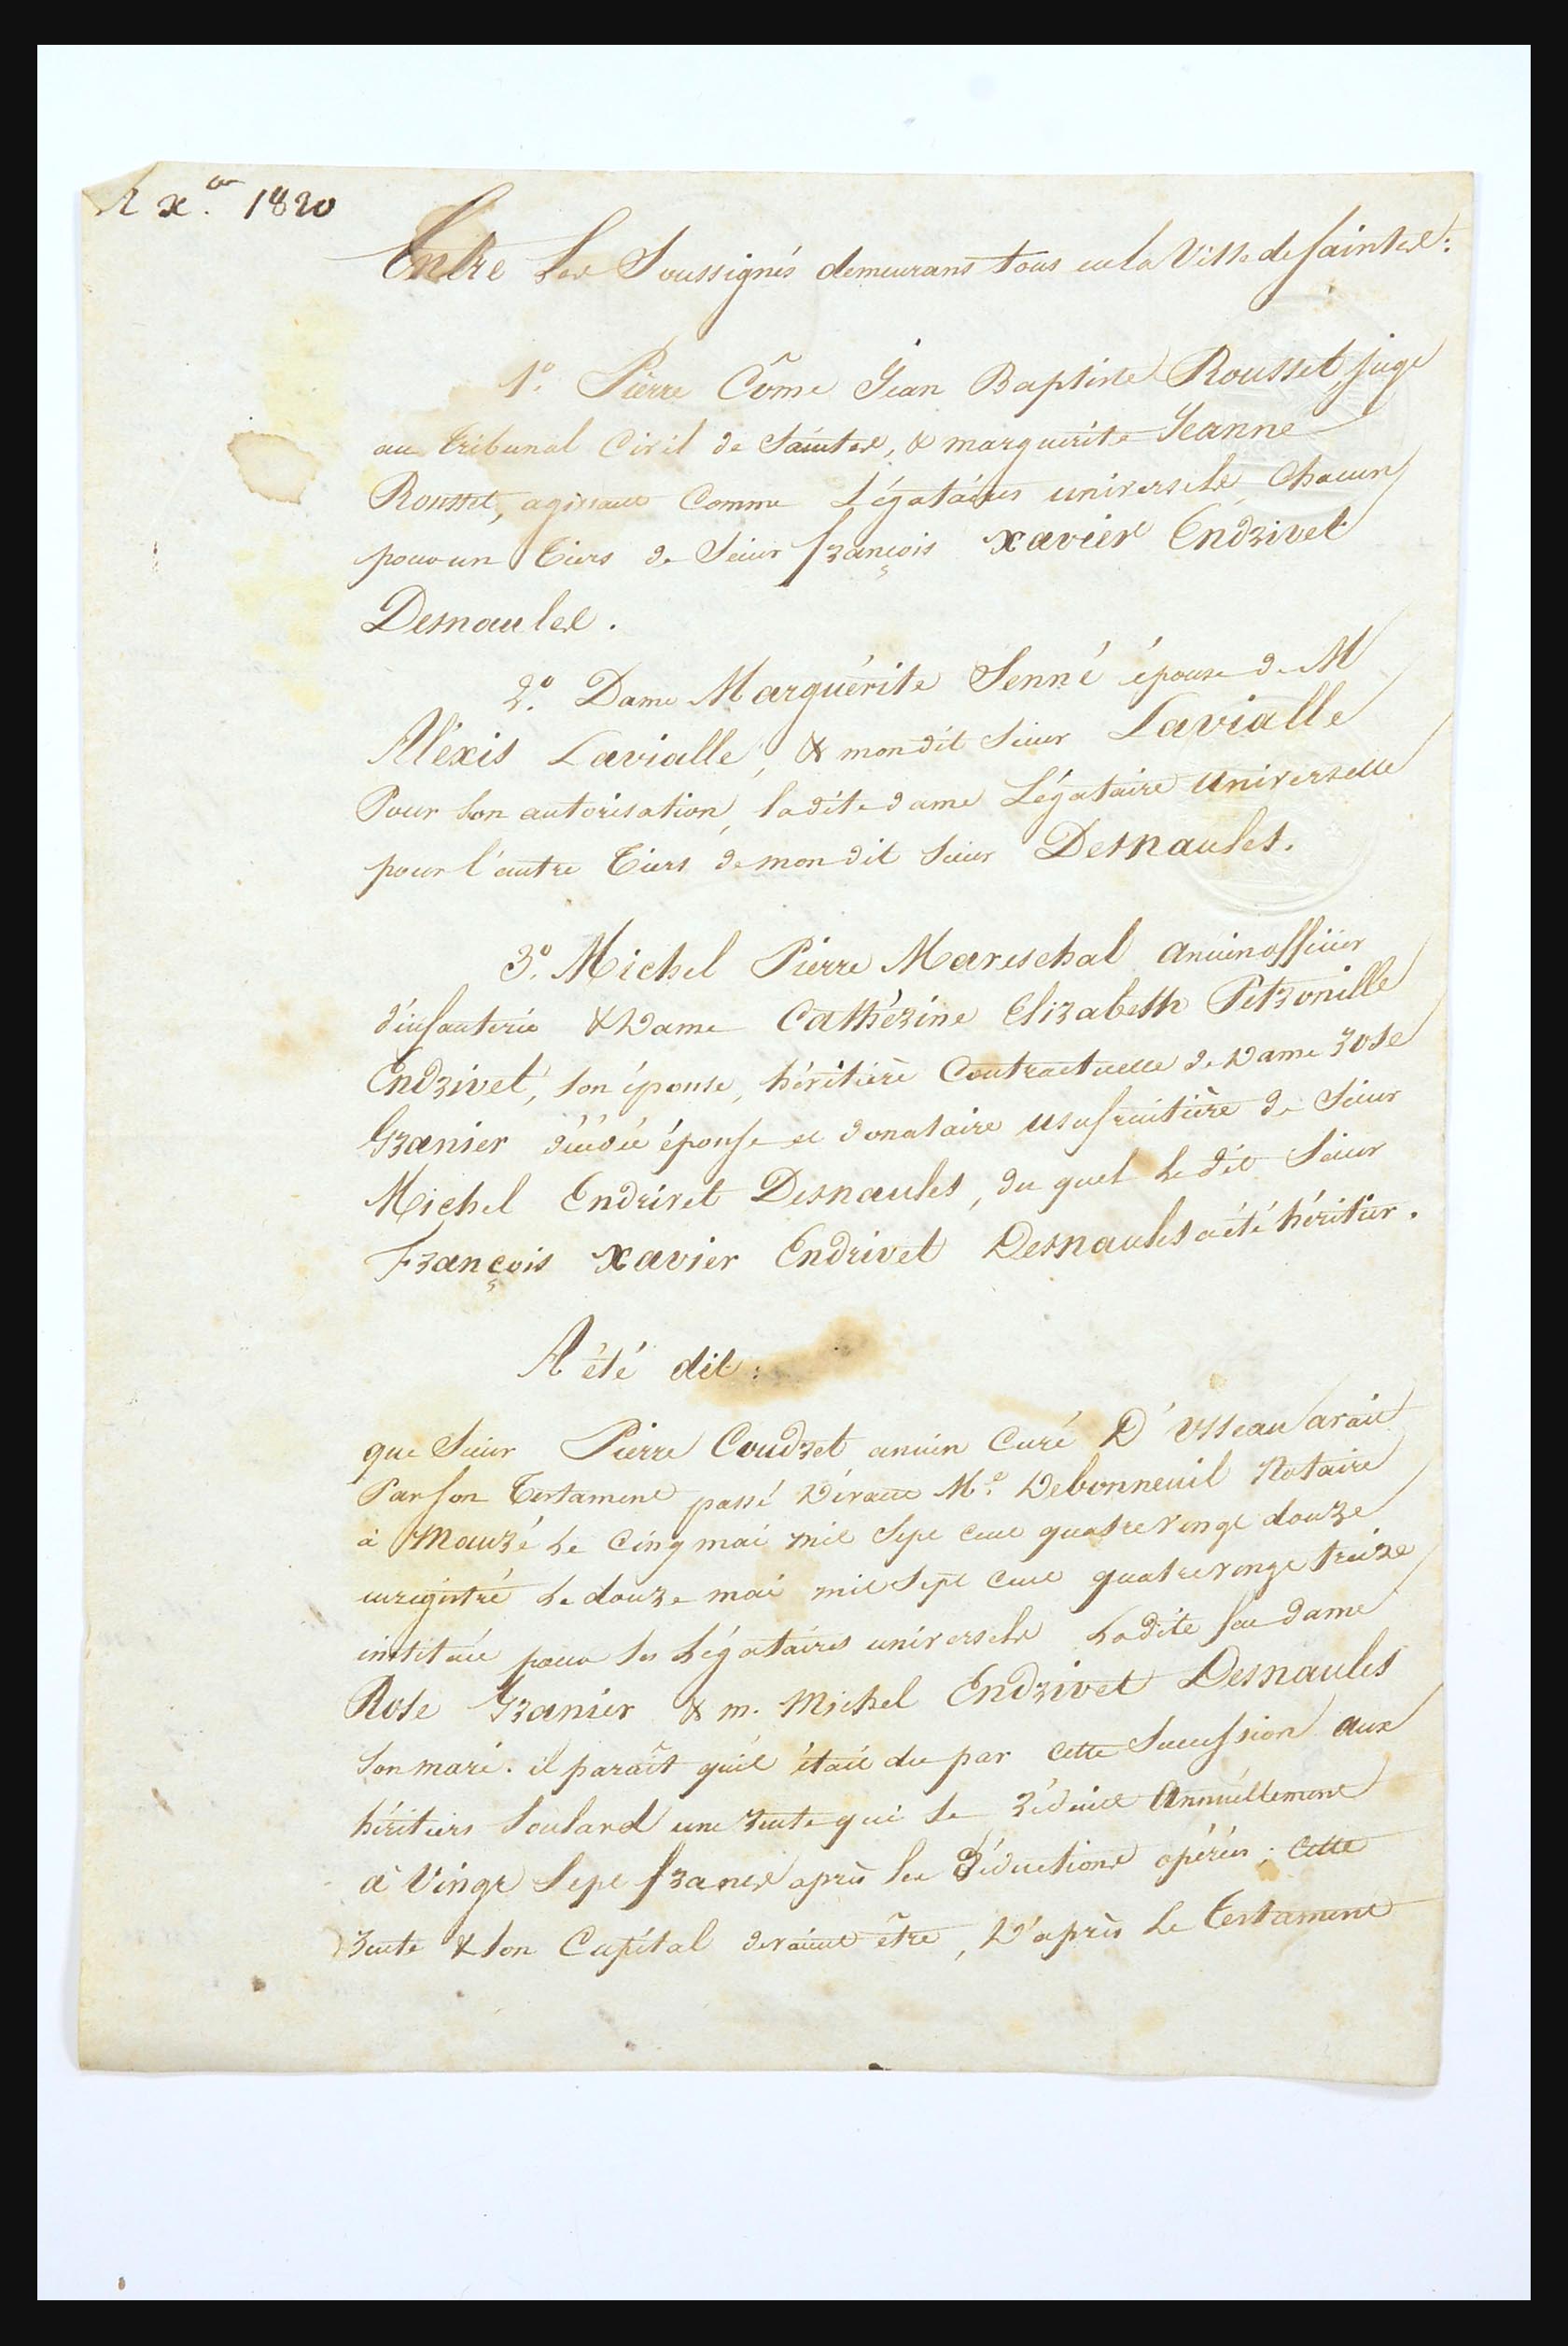 x.er 1820
Entre les Soussignés demeurans tous en la Ville de Saintes:
1º. Pierre Côme Jean Baptiste Rousset, juge
au tribunal Civil de Saintes, & marguerite Jeanne
Rousset, agissant Comme Légatáires universels, Chacun
pour un Tiers de Sieur françois Xavier Endrivet
Desnaules.
2º. Dame Marguérite Senné épouse de M
Aléxis Lavialle, & mondit Sieur Lavialle
Pour son autorisation, ladite dame Légataire universelle
pour l'autre Tiers de mondit Sieur Desnaules.
3º. Michel Pierre Mareschal ancien officier
d'infanterie & Dame Cathérine Elizabeth Pétronille
Endrivet, son épouse, héritière Contractuelle de Dame rose
Granier décédée épouse et donataire usufruitière de Sieur
Michel Endrivet Desnaules, du quel le dit Sieur
François Xavier Endrivet Desnaules a été héritier.
A été dit:
que Sieur Pierre Coudret ancien Curé D'usseau avait
Par son Testament passé Dévant Me. Debonneuil Notaire
à Mauzé le Cinq mai mil Sept cent quatre vingt douze
enregistré le douze mai mil Sept cent quatre vingt treize
institué pour ses Légatáires universels ladite feu dame
Rose Granier & m. Michel Endrivet Desnaules
son mari. il parait qu'il était du par cette Succession aux
héritiers Soulard une rente qui se réduit Annuellement
à Vingt Sept francs après les Réductions opérées; Cette
rente & son Capital devaient être, D'après le Testament